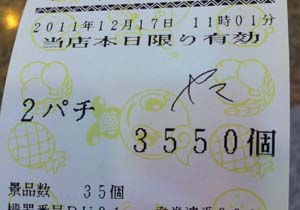 2011年12月17日 11時01分
当店本日限り有効
2パチ
3550個
景品数 35個